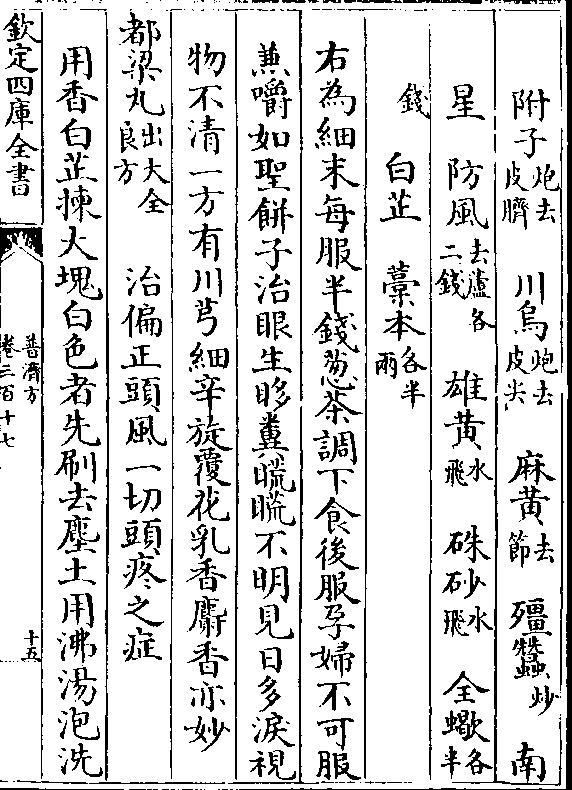 附子炮去皮臍　川烏炮去皮尖　麻黄去節　殭蠶炒　南
星　防風去蘆各二錢　雄黄水飛　硃砂水飛　全蠍各半
錢　白芷　藁本各半兩
右為細末每服半錢葱茶調下食後服孕婦不可服
兼嚼如聖餅子治眼生眵糞䀮䀮不明見日多淚視
物不清一方有川芎細辛旋覆花乳香麝香亦妙
都梁丸出大全良方　治偏正頭風一切頭疼之症
用香白芷揀大塊白色者先刷去塵土用沸湯泡洗
欽定四庫全書
普濟方
卷三百十七
十五